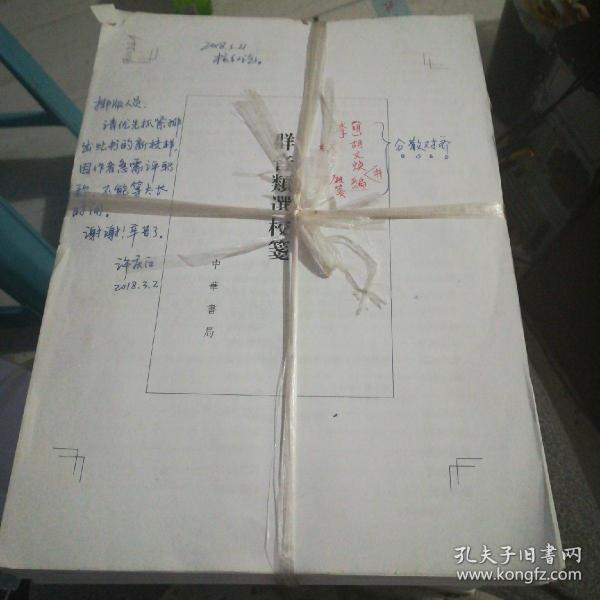 2018.3.21
排版人员:
请优先抓紧排
出此书的新校样,
因作者急需评职
称,不能等太长
时间。
谢谢!辛苦了。
许庆江
2018.3.2
群音類選校箋
中華書局
[明]胡文焕 編
李 校箋
分散对齐
孔夫子旧书网
www.kongfz.com